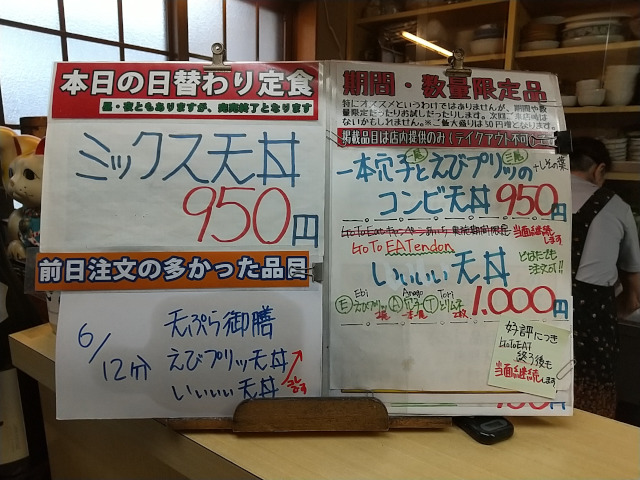 本日の日替わり定食
昼・夜ともありますが、売切終了となります
ミックス天丼
950円
前日注文の多かった品目
6/12分
天ぷら御膳
えびプリッツ天丼
いいいい天丼
コレです
期間・数量限定品
特にオススメというわけではありませんが、期間や数
量限定だったりお試しだったりします。次回ご来店時は
ないかもしれません。※ご飯大盛りは50円増となります。
掲載品目は店内提供のみ(テイクアウト不可)
一本穴子とえびプリッツの
一尾
三尾
+しその葉
コンビ天丼950円
GoToEatキャンペーンあいち 実施期間限定
当面継続します
GoTo EATendon
いいいい天丼
どなたでも
注文可!!
Ebi Anago Tori
Ⓔえびプリッツ Ⓐ穴子 Ⓣとりムネ
1.000円
好評につき
GoToEAT
終了後も
当面継続します